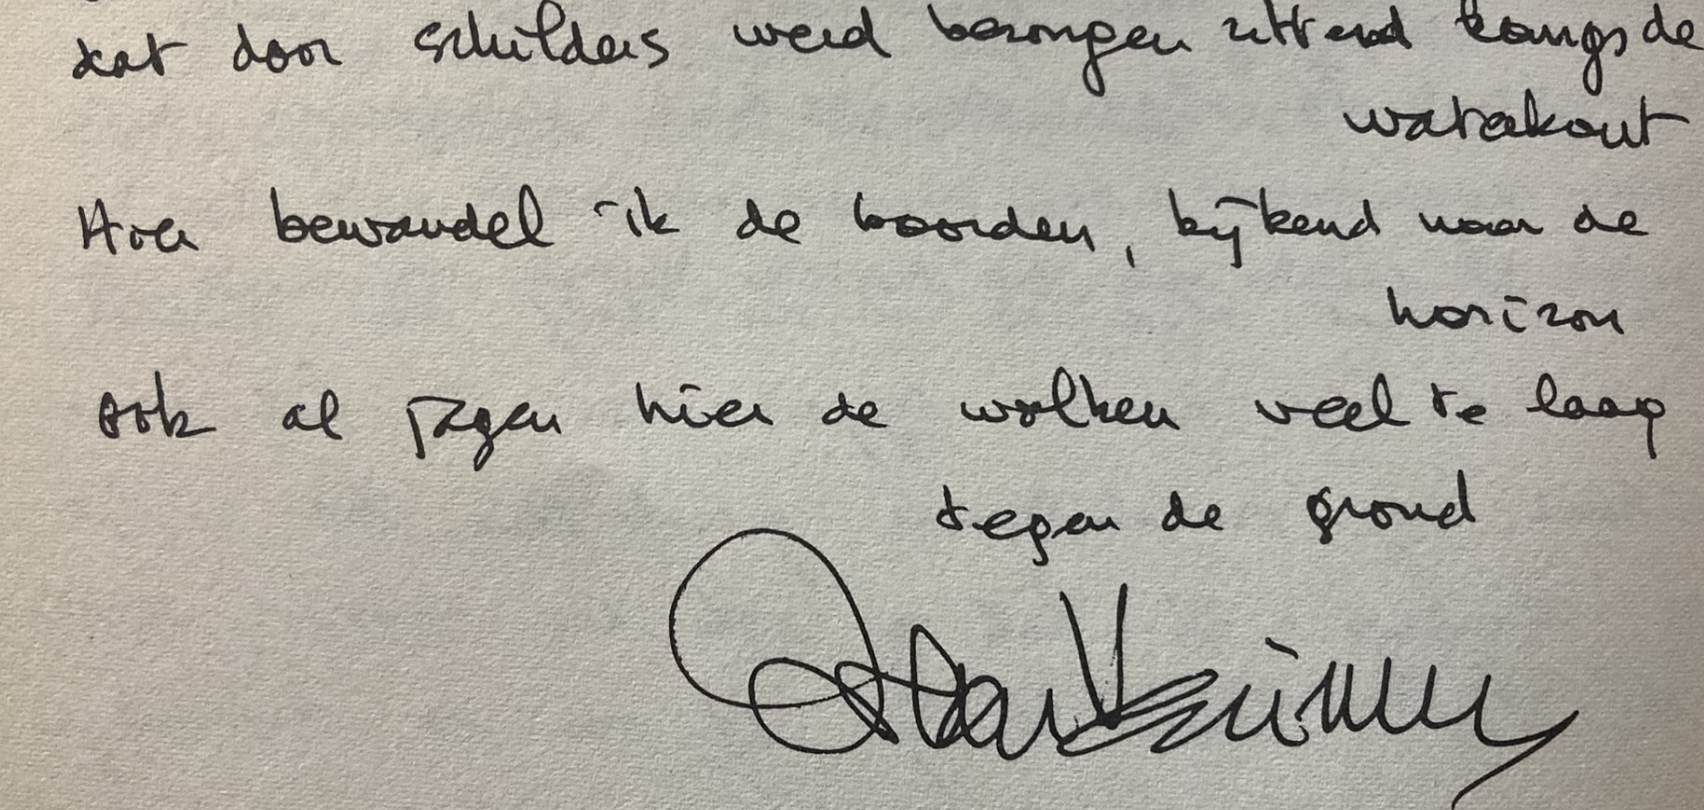 dat door schilders werd bezongen zittend langs de
waterkout
Hoe bewandel ik de boorden, kijkend naar de
horizon
ook al jagen hier de wolken veel te laag
tegen de grond